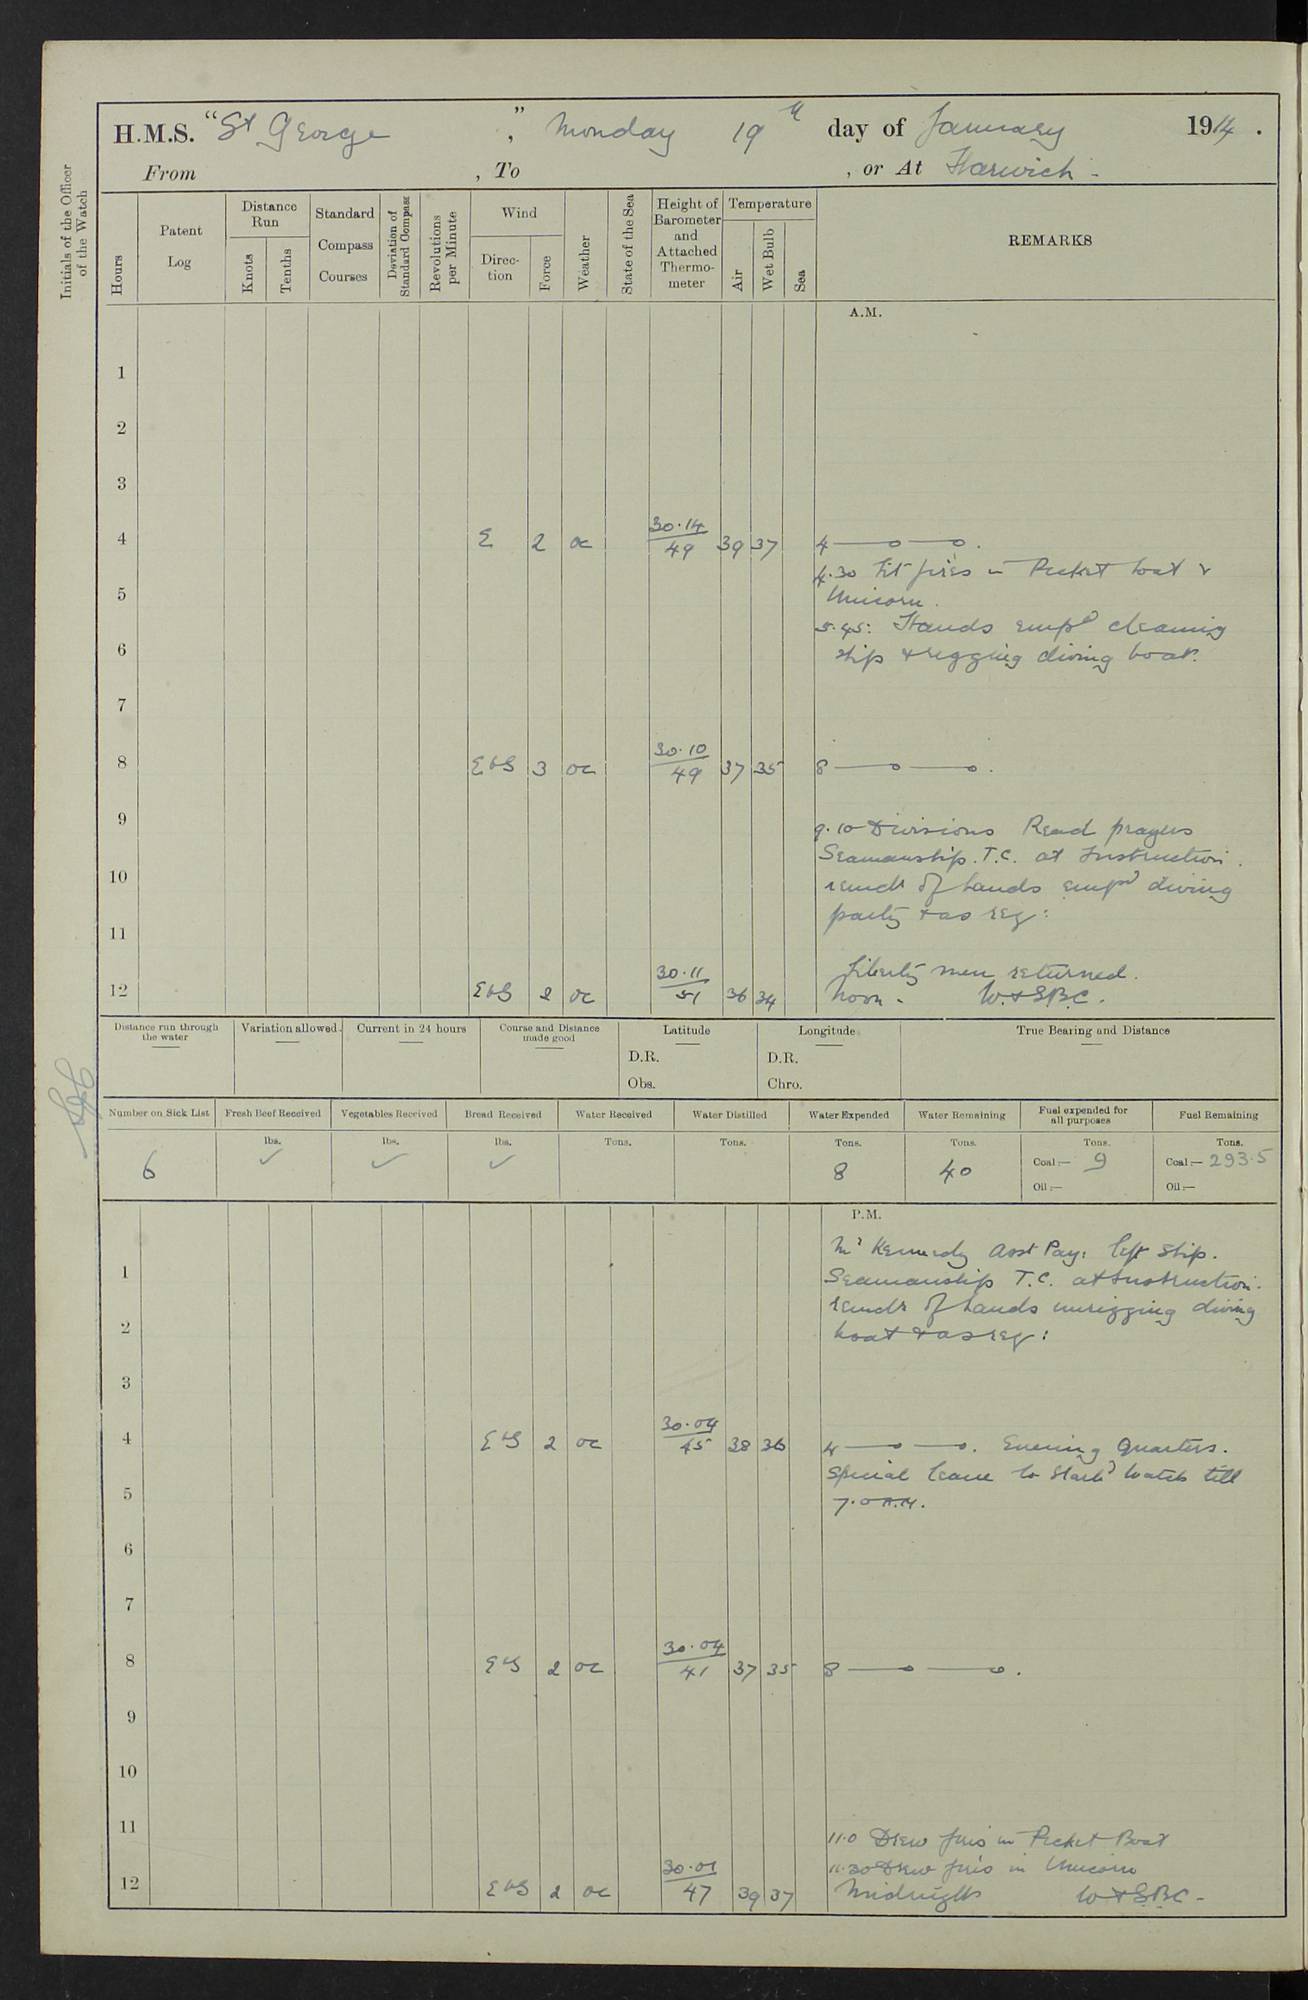 H.M.S. "St George", Monday 19th day of January 1914.
From , To , or At Harwich -
Initials of the Officer of the Watch
Hours
Patent Log
Distance Run
Knots
Tenths
Standard Compass Courses
Deviation of Standard Compass
Revolutions per Minute
Wind
Direction
Force
Weather
State of the Sea
Height of Barometer and Attached Thermometer
Temperature
Air
Wet Bulb
Sea
REMARKS
A.M.
1
2
3
4 E 2 oc 30.14/49 39 37 4 —o —o.
4.30 Lit fires in Picket boat &
5 Unicorn.
5.45: Hands empd cleaning
6 ship & rigging diving boat.
7
8 EbS 3 oc 30.10/49 37 35 8 —o —o.
9
9.10 Divisions Read prayers
Seamanship. T.C. at Instruction.
10 remdr of hands empd diving
party & as req:
11
Liberty men returned.
12 EbS 2 oc 30.11/51 36 34 Noon - W. & S.B.C.
Distance run through the water
Variation allowed.
Current in 24 hours
Course and Distance made good
Latitude
D.R.
Obs.
Longitude
D.R.
Chro.
True Bearing and Distance
Number on Sick List
Fresh Beef Received
Vegetables Received
Bread Received
Water Received
Water Distilled
Water Expended
Water Remaining
Fuel expended for all purposes
Fuel Remaining
lbs. lbs. lbs. Tons. Tons. Tons. Tons. Tons. Tons.
6 ✓ ✓ ✓ 8 40 Coal:— 9 Coal:— 293.5
Oil:— Oil:—
P.M.
Mr Kennedy Asst Pay: left ship.
1 Seamanship T.C. at Instruction.
remdr of hands unrigging diving
2 boat & as req:
3
4 EbS 2 oc 30.04/45 38 36 4 —o —o. Evening Quarters.
Special leave to Starbd Watch till
5 7.0 A.M.
6
7
8 EbS 2 oc 30.04/41 37 35 8 —o —o.
9
10
11
11.0 Drew fires in Picket Boat
11.30 Drew fires in Unicorn
12 EbS 2 oc 30.01/47 39 37 Midnight W & S.B.C -